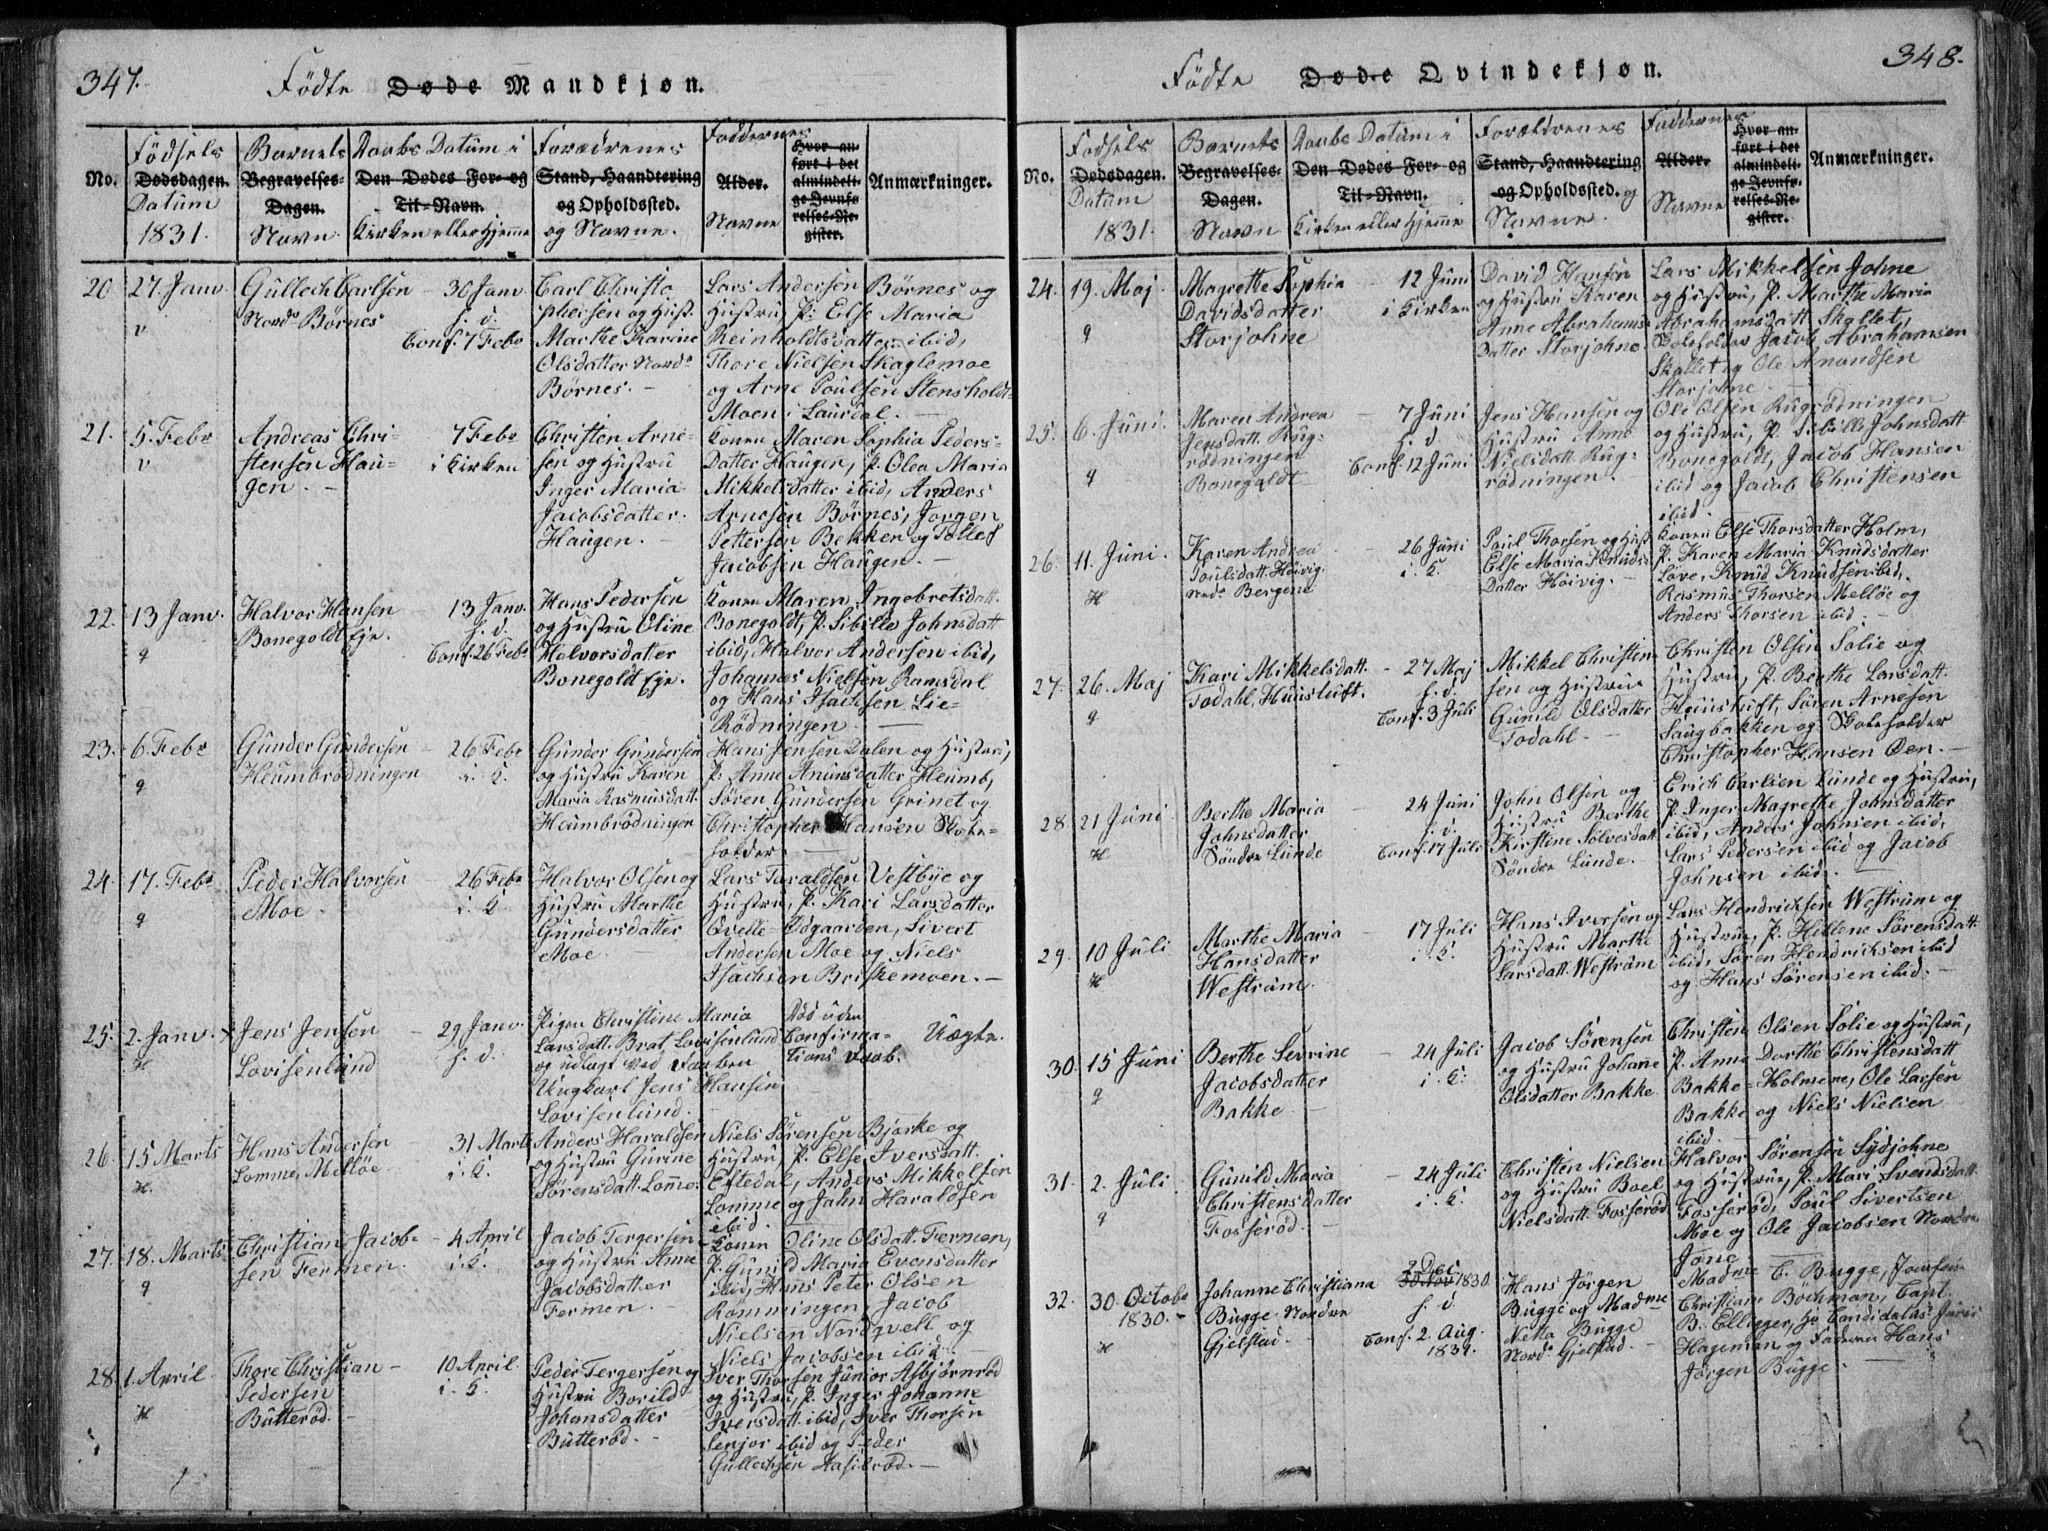 347.
Födte Døde Mandkjøn.
No.
Födsels Dødsdagen. Datum 1831.
Barnets Begravelses-Dagen. Navn
Daabs Datum i Den Dødes For- og Til-Navn. Kirken eller Hjemme
Forældrenes Stand, Haandtering og Opholdssted. og Navne.
Faddernes Alder. Navne
Hvor anført i det almindelige Jevnførelses-Register.
Anmærkninger.
20 27 Janv. v
Gullech Carlsen
Nordr Börnes
30 Janv.
h. d.
Conf. 7 Febr
Carl Christo
phersen og Hust.
Marthe Karine
Olsdatter Nordr
Börnes.
Lars Andersen Börnes og
Hustru P. Else Maria
Reinholdtsdatter ibid,
Thore Nielsen Skaglemoe
og Arne Poulsen Stensholdt
Moen i Laurdal.
21. 5. Febr v
Andreas Chri-
stensen Hau-
gen.
7 Febr
i Kirken
Christen Arne-
sen og Hustru
Inger Maria
Jacobsdatter
Haugen.
Konen Maren Sophia Peders-
Datter Haugen, P. Olea Maria
Mikkelsdatter ibid, Anders
Arnesen Börnes, Jörgen
Pettersen Bekken og Tollef
Jacobsen Haugen.
22. 13 Janv. q
Halvor Hansen
Bonegoldt Eje.
13 Janv.
h. d.
Conf. 26 Febr
Hans Pedersen
og Hustru Oline
Halvorsdatter
Bonegoldt Eje.
Konen Maren Ingebretsdatt.
Bonegoldt, P. Sibille Johnsdatt
ibid, Halvor Andersen ibid,
Johannes Nielsen Ramsdal
og Hans Isachsen Lie-
Rödningen
23. 6. Febr q
Gunder Gundersen
Heumbrödningen
26 Febr
i. K.
Gunder Gundersen
og Hustru Karen
Maria Rasmusdatt.
Heumbrödningen
Hans Jensen Dalen og Hustru,
P. Anne Anunsdatter Heumb,
Sören Gundersen Grinet og
Christopher Hansen Skole-
holder.
24. 17. Febr q
Peder Halvorsen
Moe
26 Febr
i. K
Halvor Olsen og
Hustru Marthe
Gundersdatter
Moe
Lars Taraldsen Vestbye og
Hustru, P. Kari Larsdatter
Qvelle-Ödgaarden, Sivert
Andersen Moe og Niels
Isachsen Briskemoen.
25. 2. Janv. H
Jens Jensen
Lovisenlund
29 Janv.
h. d.
Pigen Christine Maria
Larsdatt. Brat, Lovisenlund
og udlagt ved Daaben
Ungkarl Jens Hansen
Lovisenlund.
Död uden
Confirma-
tions Daab.
Uægte.
26. 15 Marts H.
Hans Andersen
Lomme, Mellöe
31 Marts
i. K.
Anders Haraldsen
og Hustru Gurine
Sörensdatt. Lomme.
Niels Sörensen Bjerke og
Hustru, P. Else Iversdatt.
Eftedal, Anders Mikkelsen
Lomme og Jahn Haraldsen
ibid.
27. 18. Marts q
Christian Jacob-
sen Fermen.
4 April
i. K.
Jacob Tergersen
og Hustru Anne
Jacobsdatter
Fermen.
Konen Oline Olsdatt. Fermen,
P. Gunild Maria Evensdatter
ibid, Hans Peter Olsen
Rönningen, Jacob
Nielsen Nordqvelt og
Niels Jacobsen ibid.
28. 1. April H
Thore Christian
Pedersen
Butteröd.
10 April
i. K.
Peder Tergersen og
Hustru Borild
Johansdatter
Butteröd.
Iver Thorsen Junior Asbjörnröd
og Hustru, P. Inger Johanne
Iversdatt. ibid, Iver Thorsen
Senjor ibid og Peder
Gullechsen Haslröd.
348.
Födte Døde Qvindekjøn.
No.
Födsels Dødsdagen. Datum 1831.
Barnets Begravelses-Dagen. Navn
Daabs Datum i Den Dødes For- og Til-Navn. Kirken eller Hjemme
Forældrenes Stand, Haandtering og Opholdssted. og Navne.
Faddernes Alder. Navne
Hvor anført i det almindelige Jevnførelses-Register.
Anmærkninger.
24. 19. Maj. q
Magrette Sophia
Davidsdatter
Storjohne
12 Juni
i Kirken
David Hansen
og Hustru Karen
Anne Abrahams-
Datter Storjohne.
Lars Mikkelsen Johne
og Hustru, P. Marthe Maria
Abrahamsdatt. Skallet,
Skoleholder Jacob Abrahamsen
Skallet og Ole Amundsen
Storjohne.
25. 6. Juni. q
Maren Andrea
Jensdatt. Rug-
rödningen
Bonegoldt
7 Juni
h. d.
Conf. 12 Juni
Jens Hansen og
Hustru Anne
Nielsdatt. Rug-
rödningen.
Ole Olsen Rugrödningen
og Hustru, P. Sibille Johnsdatt
Bonegoldt, Jacob Hansen
ibid og Jacob Christensen
ibid.
26. 11. Juni. H
Karen Andrea
Poulsdatt. Höivig
Nordr Bergene
26 Juni
i. K.
Poul Thorsen og Hust
Else Maria Knuds-
Datter Höivig.
Konen Else Thorsdatter Holm,
P. Karen Maria Knudsdatter
Löve, Knud Knudsen ibid,
Rasmus Thorsen Mellöe og
Anders Thorsen ibid.
27. 26. Maj q
Kari Mikkelsdatt.
Todahl, Huustuft.
27 Maj
h. d.
Conf. 3 Juli
Mikkel Christen-
sen og Hustrue
Gunild Olsdatter
Todahl.
Christen Olsen Solie og
Hustru, P. Berthe Larsdatt.
Huustuft, Sören Arnesen
Saugbakken og Skoleholder
Christopher Hansen Öen.
28. 21 Juni H
Berthe Maria
Johnsdatter
Söndre Lunde
24 Juni
h. d.
Conf. 17 Juli
John Olsen og
Hustru Berthe
Kirstine Sölvesdatt
Söndre Lunde.
Erich Carlsen Lunde og Hustru,
P. Inger Magrethe Johnsdatter
ibid, Anders Johnsen ibid,
Lars Pedersen ibid og Jacob
Johnsen ibid.
29. 10 Juli H
Marthe Maria
Hansdatter
Westrum.
17 Juli
i. K.
Hans Iversen og
Hustru Marthe
Larsdatt. Westrum
Lars Hendrichsen Westrum og
Hustrue, P. Hellene Sörensdatt.
ibid, Sören Hendrichsen ibid
og Hans Sörensen ibid.
30. 15 Juni q
Berthe Sevrine
Jacobsdatter
Bakke
24 Juli
i. K.
Jacob Sörensen
og Hustru Johane
Olsdatter Bakke
Christen Olsen Solie og Hustru,
P. Anne Dorthe Christensdatt
Bakke-Holmene, Ole Larsen
Bakke og Niels Nielsen
ibid.
31. 2. Juli q
Gunild Maria
Christensdatter
Fosseröd.
24 Juli
i. K
Christen Nielsen
og Hustru Boel
Nielsdatt. Fosseröd
Halvor Sörensen Sydjohne
og Hustrue, P. Mari Svendsdatt.
Fosseröd, Poul Sivertsen
Moe og Ole Jacobsen Nordre
Jone
32. 30. Octobr 1830. H
Johanne Christiana
Bugge Nordre
Gjelstad.
2 Dec.
30 Nov 1830.
h. d.
Conf. 2. Aug.
1831.
Hans Jörgen
Bugge og Madme
Netta Bugge
Nordr Gjelstad.
Madme C. Bugge, Jomfru
Christiane Böchman, Capt.
B. Elligger, Hr Candidatus Juris
Hageman og Faderen Hans
Jörgen Bugge.